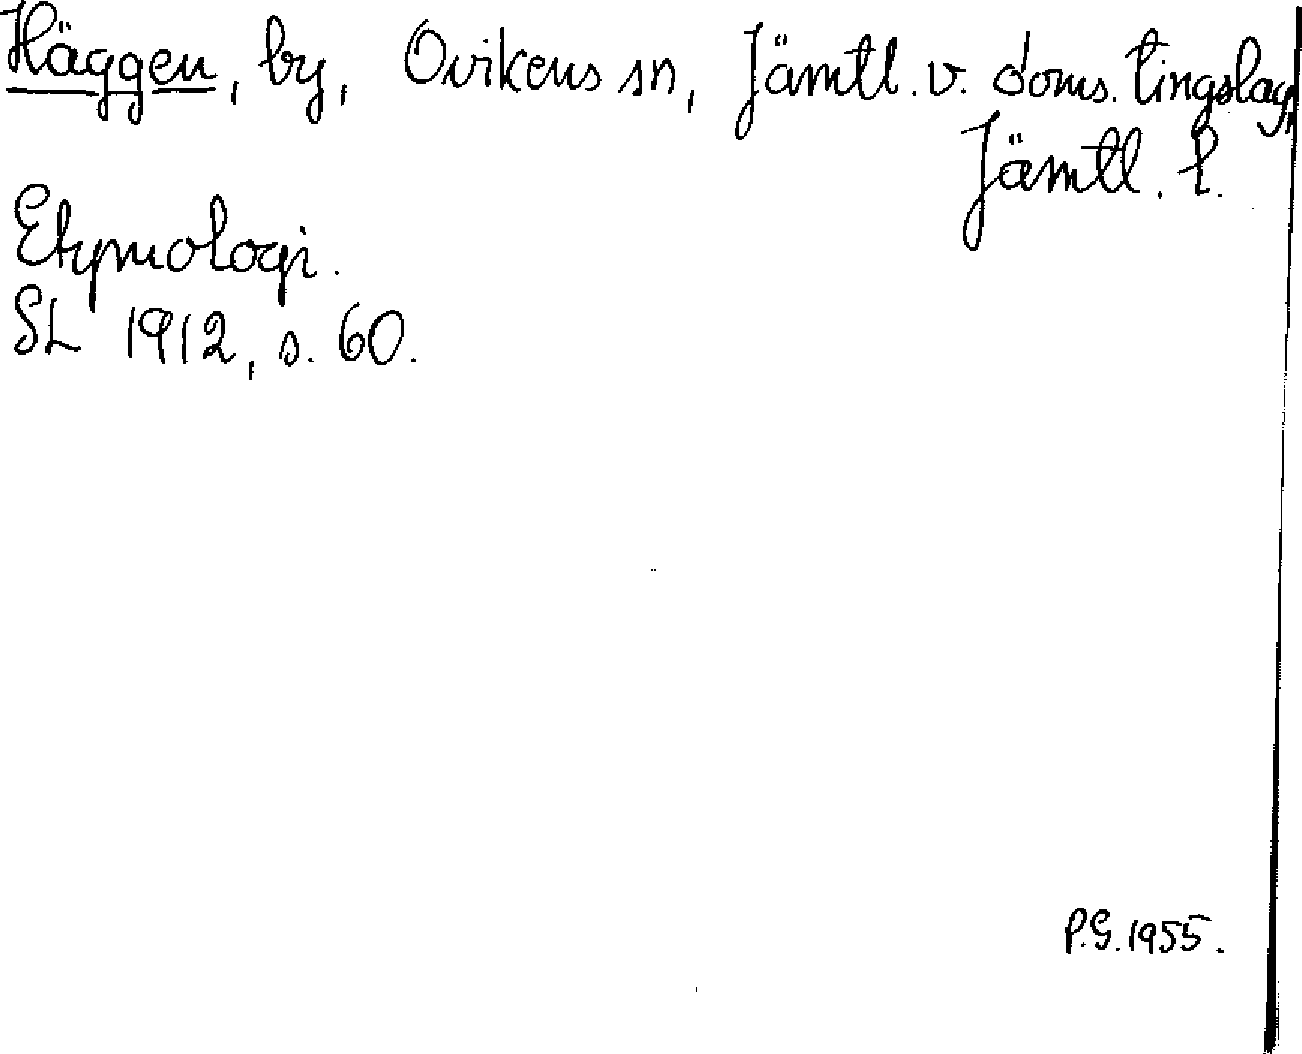 Häggen, by, Ovikens sn, Jämtl. v. doms. tingslag,
Jämtl. l.
Etymologi.
SL 1912, s. 60.
P.G. 1955.